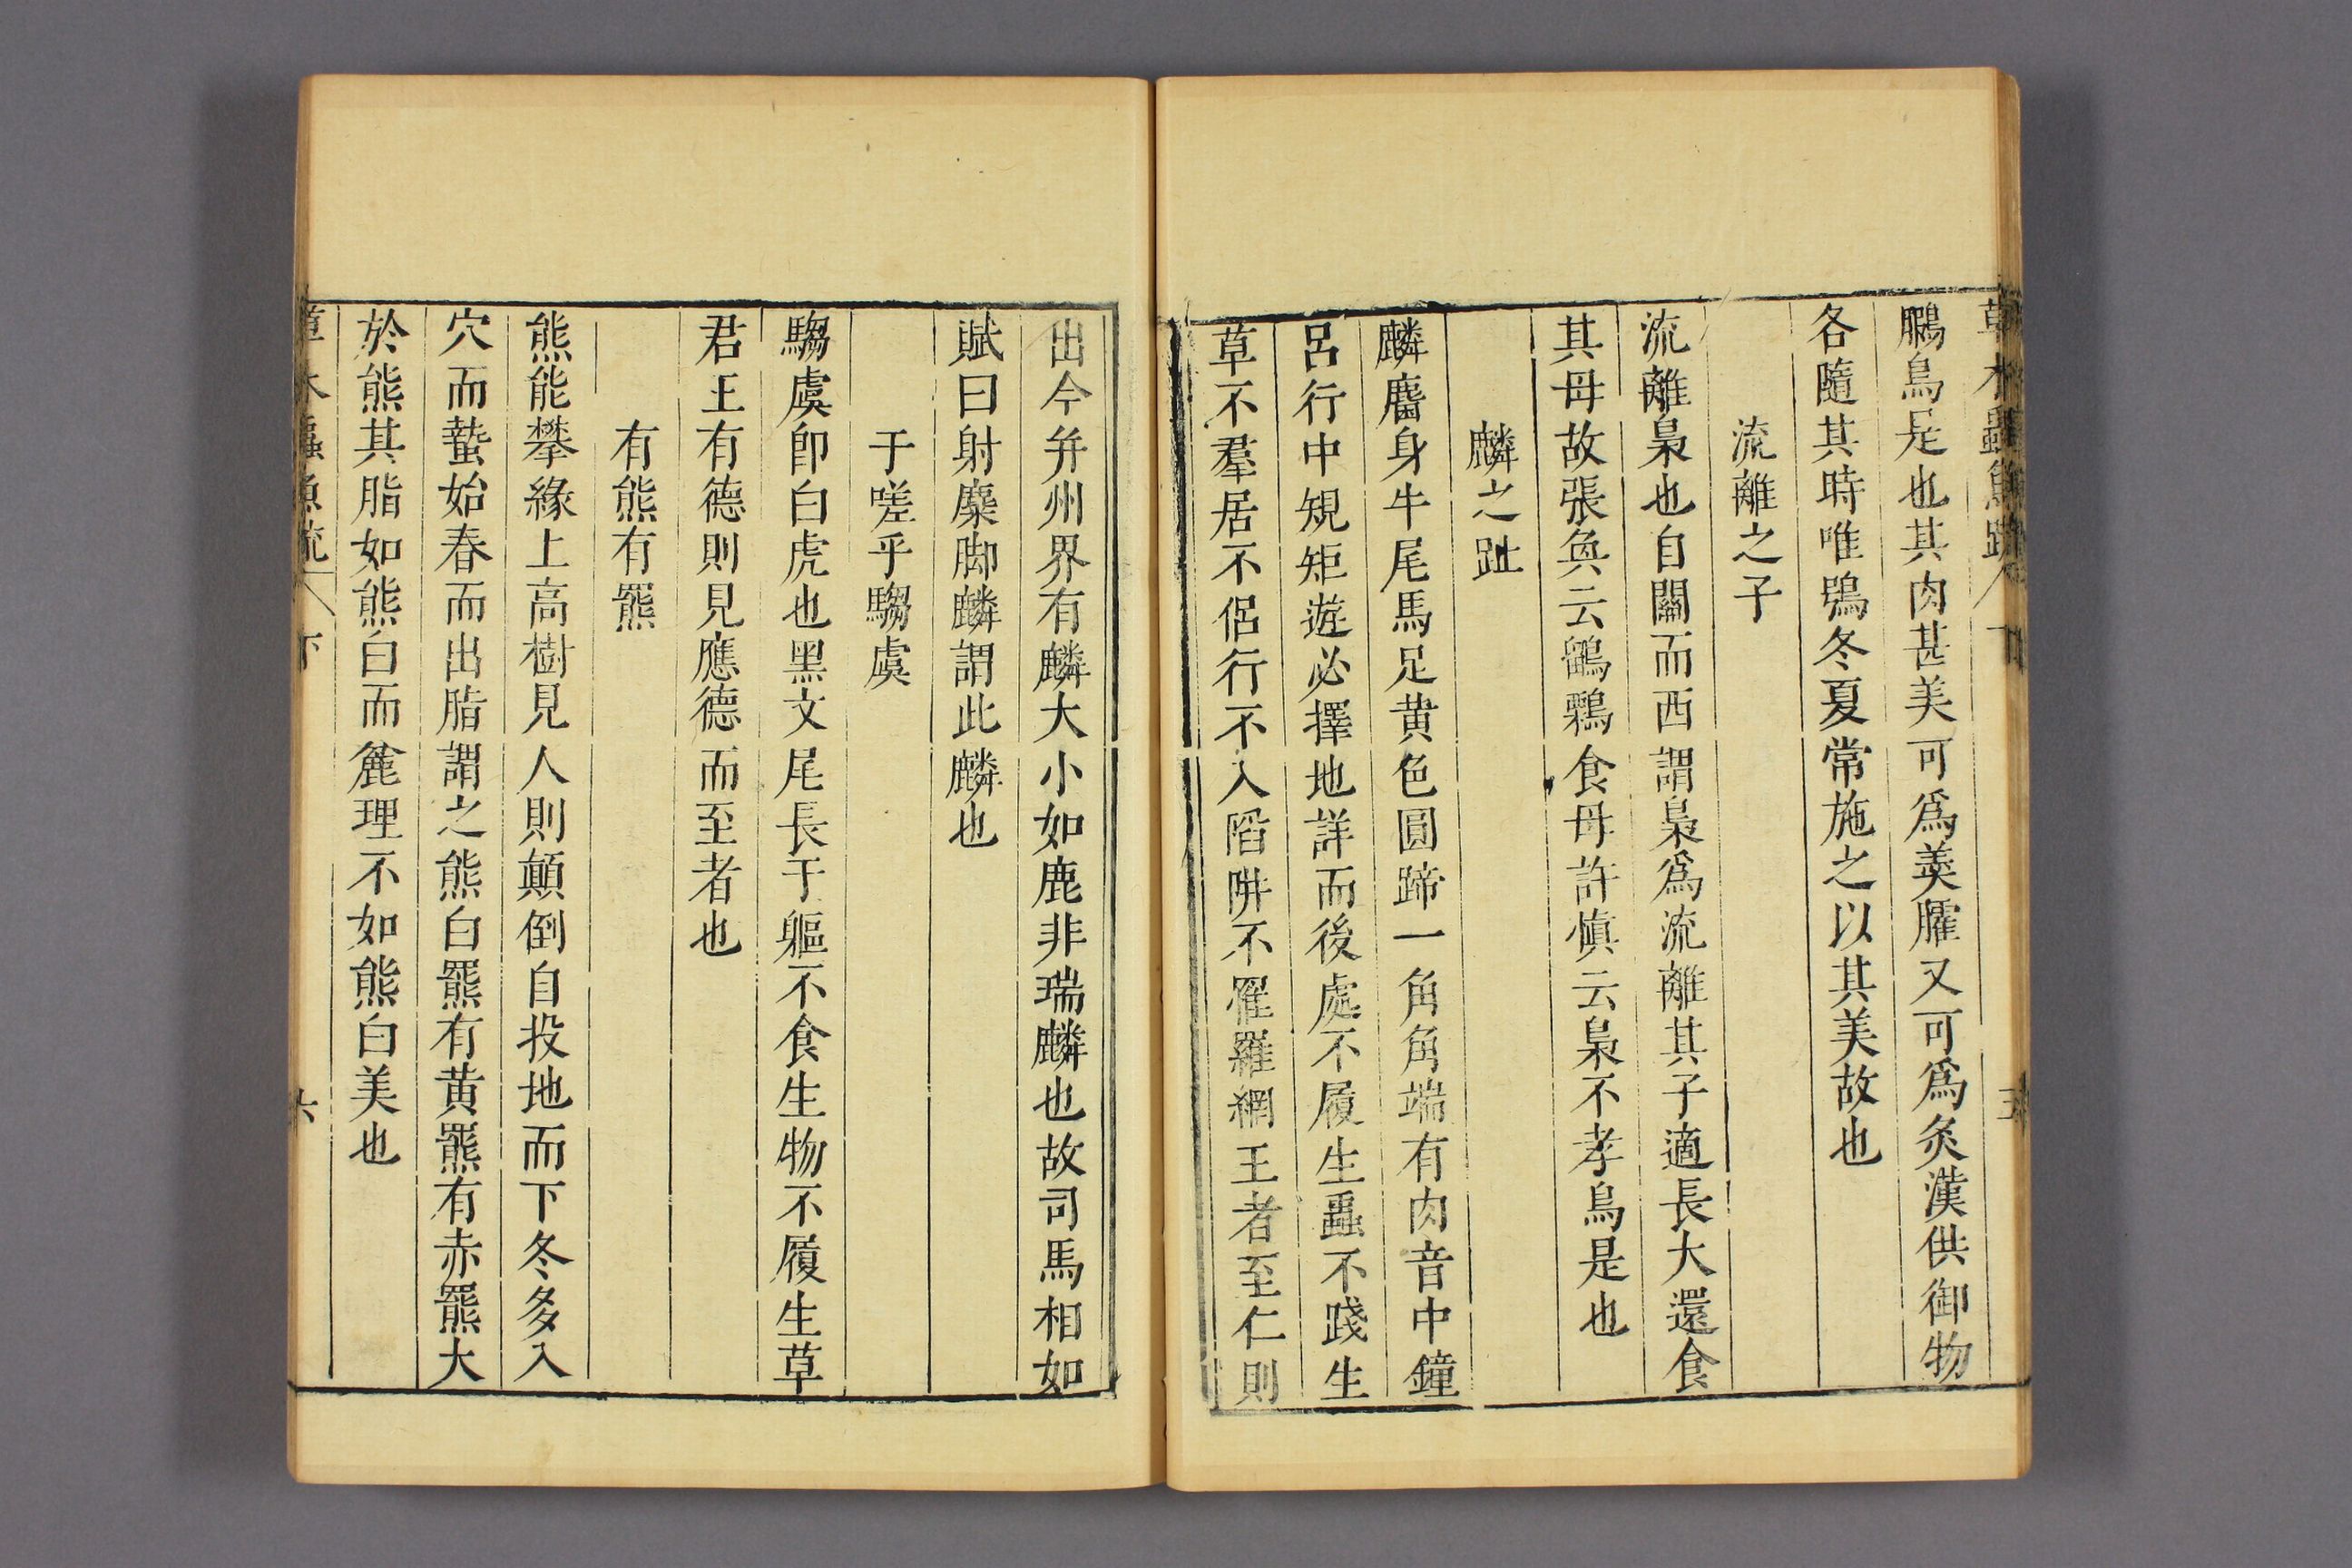 草木蟲魚疏 下 五
鵩鳥是也其肉甚美可爲羹臛又可爲炙漢供御物
各隨其時唯鴞冬夏常施之以其美故也
流離之子
流離梟也自關而西謂梟爲流離其子適長大還食
其母故張奐云鶹鷅食母許慎云梟不孝鳥是也
麟之趾
麟麕身牛尾馬足黄色圓蹄一角角端有肉音中鐘
呂行中規矩遊必擇地詳而後處不履生蟲不踐生
草不羣居不侶行不入陷阱不罹羅網王者至仁則
出今并州界有麟大小如鹿非瑞麟也故司馬相如
賦曰射麋脚麟謂此麟也
于嗟乎騶虞
騶虞卽白虎也黑文尾長于軀不食生物不履生草
君王有德則見應德而至者也
有熊有羆
熊能攀緣上高樹見人則顛倒自投地而下冬多入
穴而蟄始春而出脂謂之熊白羆有黄羆有赤羆大
於熊其脂如熊白而麄理不如熊白美也
草木蟲魚疏 下 六